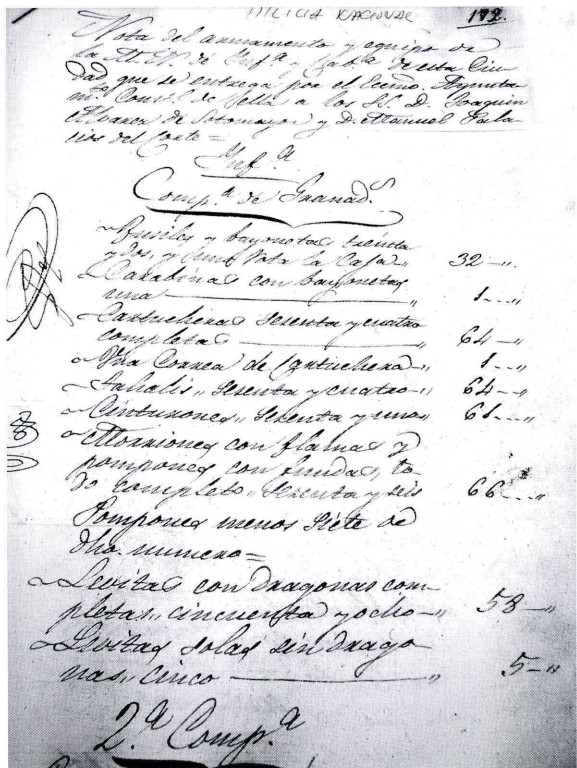 MILICIA NACIONAL
172.
Nota del armamento y equipo de
la M. N. de Inf.ª y Cab.ª de esta Ciu-
dad que se entrega por el Ecsmo. Ayunta-
m.to Const.l de ella a los SS. D. Joaquin
Alvarez de Sotomayor y D. Manuel Pala-
cios del Corte=
Inf.ª
Comp.ª de Granad.s
Fusiles y bayonetas treinta
y dos, y rota la Caja " 32 - "
Carabinas con bayonetas
una " 1 - "
Cartucheras sesenta y cuatro
completas " 64 - "
Una Correa de Cartuchera " 1 - "
Tahalis " sesenta y cuatro " 64 - "
Cinturones " sesenta y uno " 61 - "
Morriones con flamas y
pompones con fundas, to-
do completo " sesenta y seis 66 - "
Pompones menos siete de
dho. numero=
Levitas con dragonas com-
pletas " cincuenta y ocho " 58 - "
Levitas solas sin drago-
nas " cinco " 5 - "
2.ª Comp.ª